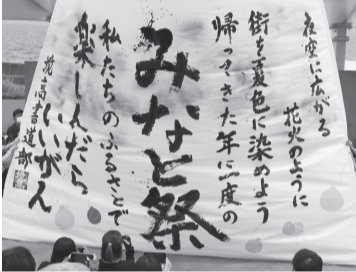 夜空に広がる
花火のように
街を夏色に染めよう
帰ってきた年に一度の
みなと祭
私たちのふるさとで
楽しんだら
いいがん
高書道部